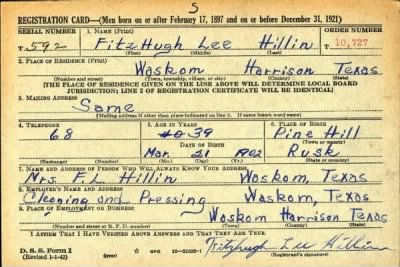 5
REGISTRATION CARD—(Men born on or after February 17, 1897 and on or before December 31, 1921)
SERIAL NUMBER 1. NAME (Print) ORDER NUMBER
T. 592 FitzHugh Lee Hillin T 10,727
(First) (Middle) (Last)
2. PLACE OF RESIDENCE (Print)
Waskom Harrison Texas
(Number and street) (Town, township, village, or city) (County) (State)
[THE PLACE OF RESIDENCE GIVEN ON THE LINE ABOVE WILL DETERMINE LOCAL BOARD
JURISDICTION; LINE 2 OF REGISTRATION CERTIFICATE WILL BE IDENTICAL]
3. MAILING ADDRESS
Same
(Mailing address if other than place indicated on line 2. If same insert word same)
4. TELEPHONE 5. AGE IN YEARS 6. PLACE OF BIRTH
68 40 39 Pine Hill
DATE OF BIRTH (Town or county)
Mar. 21 1902 Rusk
(Exchange) (Number) (Mo.) (Day) (Yr.) (State or country)
7. NAME AND ADDRESS OF PERSON WHO WILL ALWAYS KNOW YOUR ADDRESS
Mrs. F. L. Hillin Waskom, Texas
8. EMPLOYER'S NAME AND ADDRESS
Cleaning and Pressing Waskom, Texas
9. PLACE OF EMPLOYMENT OR BUSINESS
Waskom Harrison Texas
(Number and street or R. F. D. number) (Town) (County) (State)
I AFFIRM THAT I HAVE VERIFIED ABOVE ANSWERS AND THAT THEY ARE TRUE.
D. S. S. Form 1 Fitzhugh Lee Hillin
(Revised 1-1-42) (over) GPO (Registrant's signature)